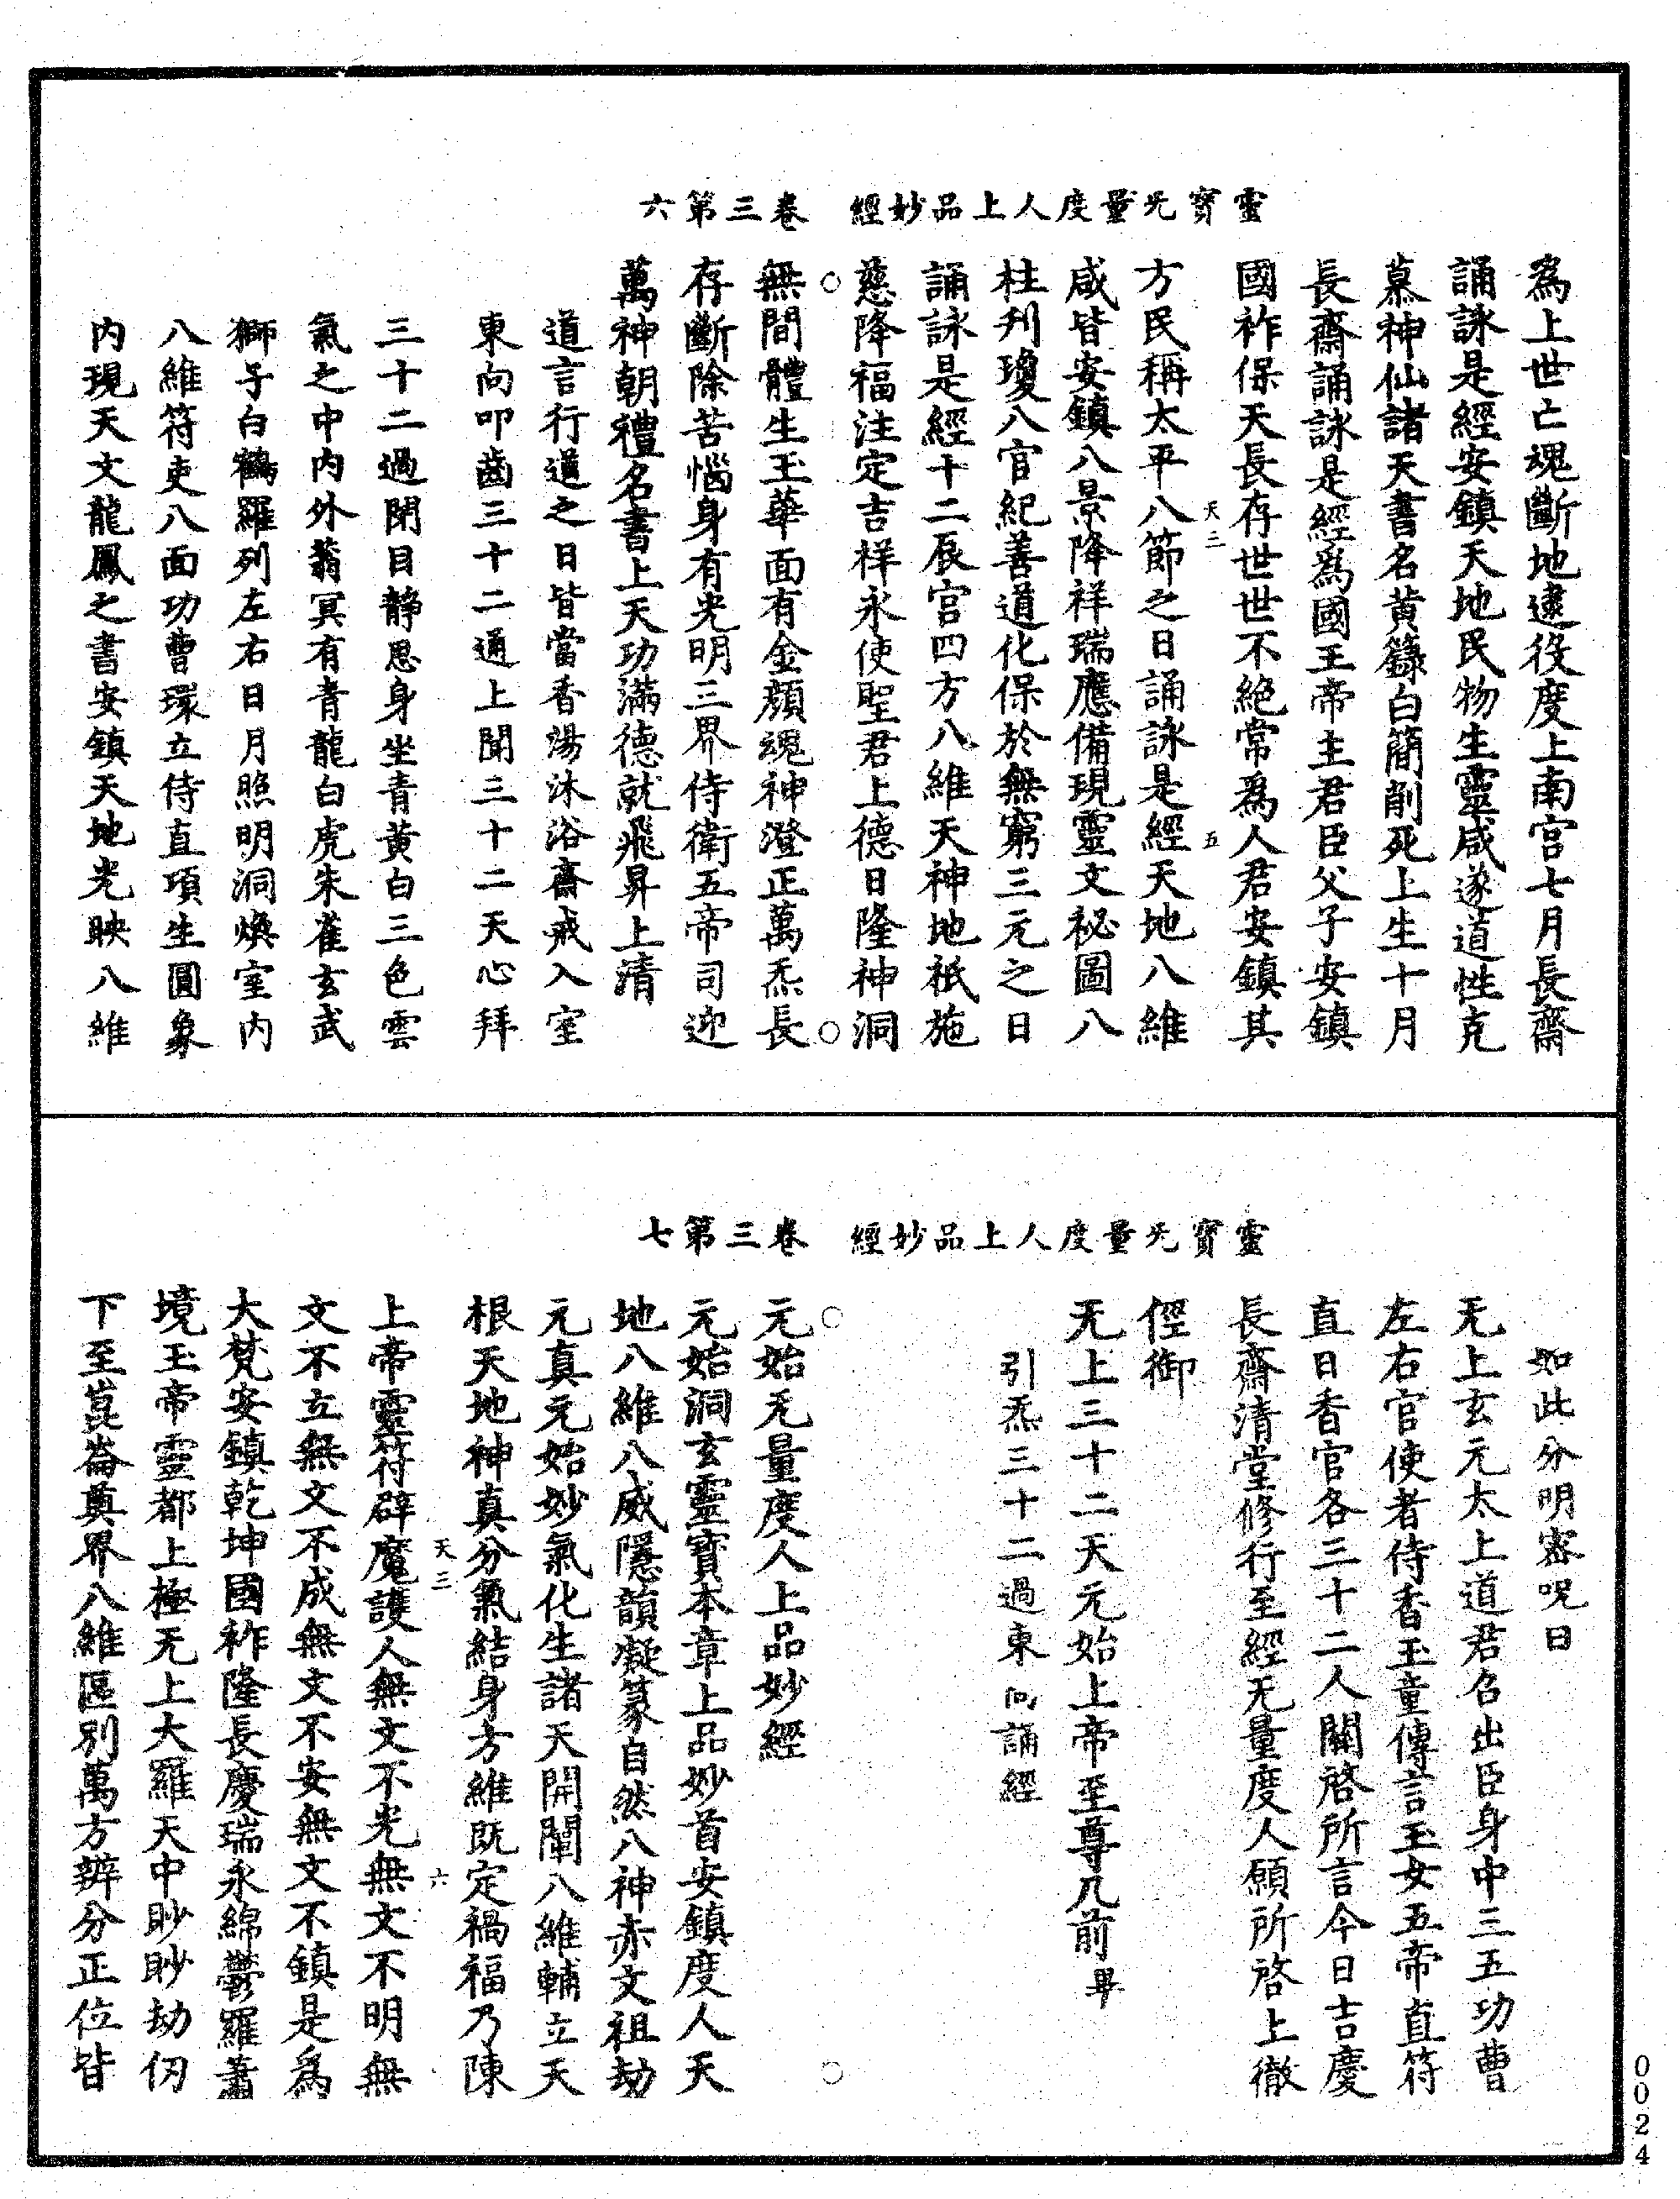 靈寶无量度人上品妙經　卷三第六
為上世亡魂斷地逮役度上南宮七月長齋
誦詠是經安鎮天地民物生靈咸遂道性克
慕神仙諸天書名黃籙白簡削死上生十月
長齋誦詠是經為國王帝主君臣父子安鎮
國祚保天長存世世不絕常為人君安鎮其
天三　五
方民稱太平八節之日誦詠是經天地八維
咸皆安鎮八景降祥瑞應備現靈文祕圖八
柱刋瓊八官紀善道化保於無窮三元之日
誦詠是經十二辰宮四方八維天神地祇施
慈降福注定吉祥永使聖君上德日隆神洞
無間體生玉華面有金顏魂神澄正萬炁長
存斷除苦惱身有光明三界侍衛五帝司迎
萬神朝禮名書上天功滿德就飛昇上清
道言行道之日皆當香湯沐浴齋戒入室
東向叩齒三十二通上聞三十二天心拜
三十二過閉目靜思身坐青黃白三色雲
氣之中內外蓊冥有青龍白虎朱雀玄武
獅子白鶴羅列左右日月照明洞煥室內
八維符吏八面功曹環立侍直項生圓象
內現天文龍鳳之書安鎮天地光映八維
靈寶无量度人上品妙經　卷三第七
如此分明密呪曰
无上玄元太上道君召出臣身中三五功曹
左右官使者侍香玉童傳言玉女五帝直符
直日香官各三十二人關啓所言今日吉慶
長齋清堂修行至經无量度人願所啓上徹
徑御
无上三十二天元始上帝至尊几前畢
引炁三十二過東向誦經
元始无量度人上品妙經
元始洞玄靈寶本章上品妙首安鎮度人天
地八維八威隱韻凝篆自然八神赤文祖劫
元真元始妙氣化生諸天開闡八維輔立天
根天地神真分氣結身方維既定禍福乃陳
天三　六
上帝靈符辟魔護人無文不光無文不明無
文不立無文不成無文不安無文不鎮是為
大梵安鎮乾坤國祚隆長慶瑞永綿鬱羅蕭
境玉帝靈都上極无上大羅天中眇眇劫仞
下至崑崙奠界八維區別萬方辨分正位皆
0024